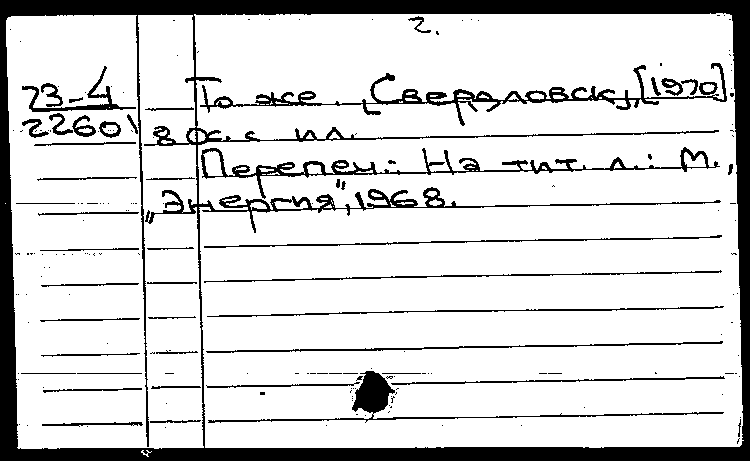 2.
73-4 То же. [Свердловск], [1970].
22601 80с. с ил.
Перепеч.: На тит. л.: М.,
„Энергия", 1968.